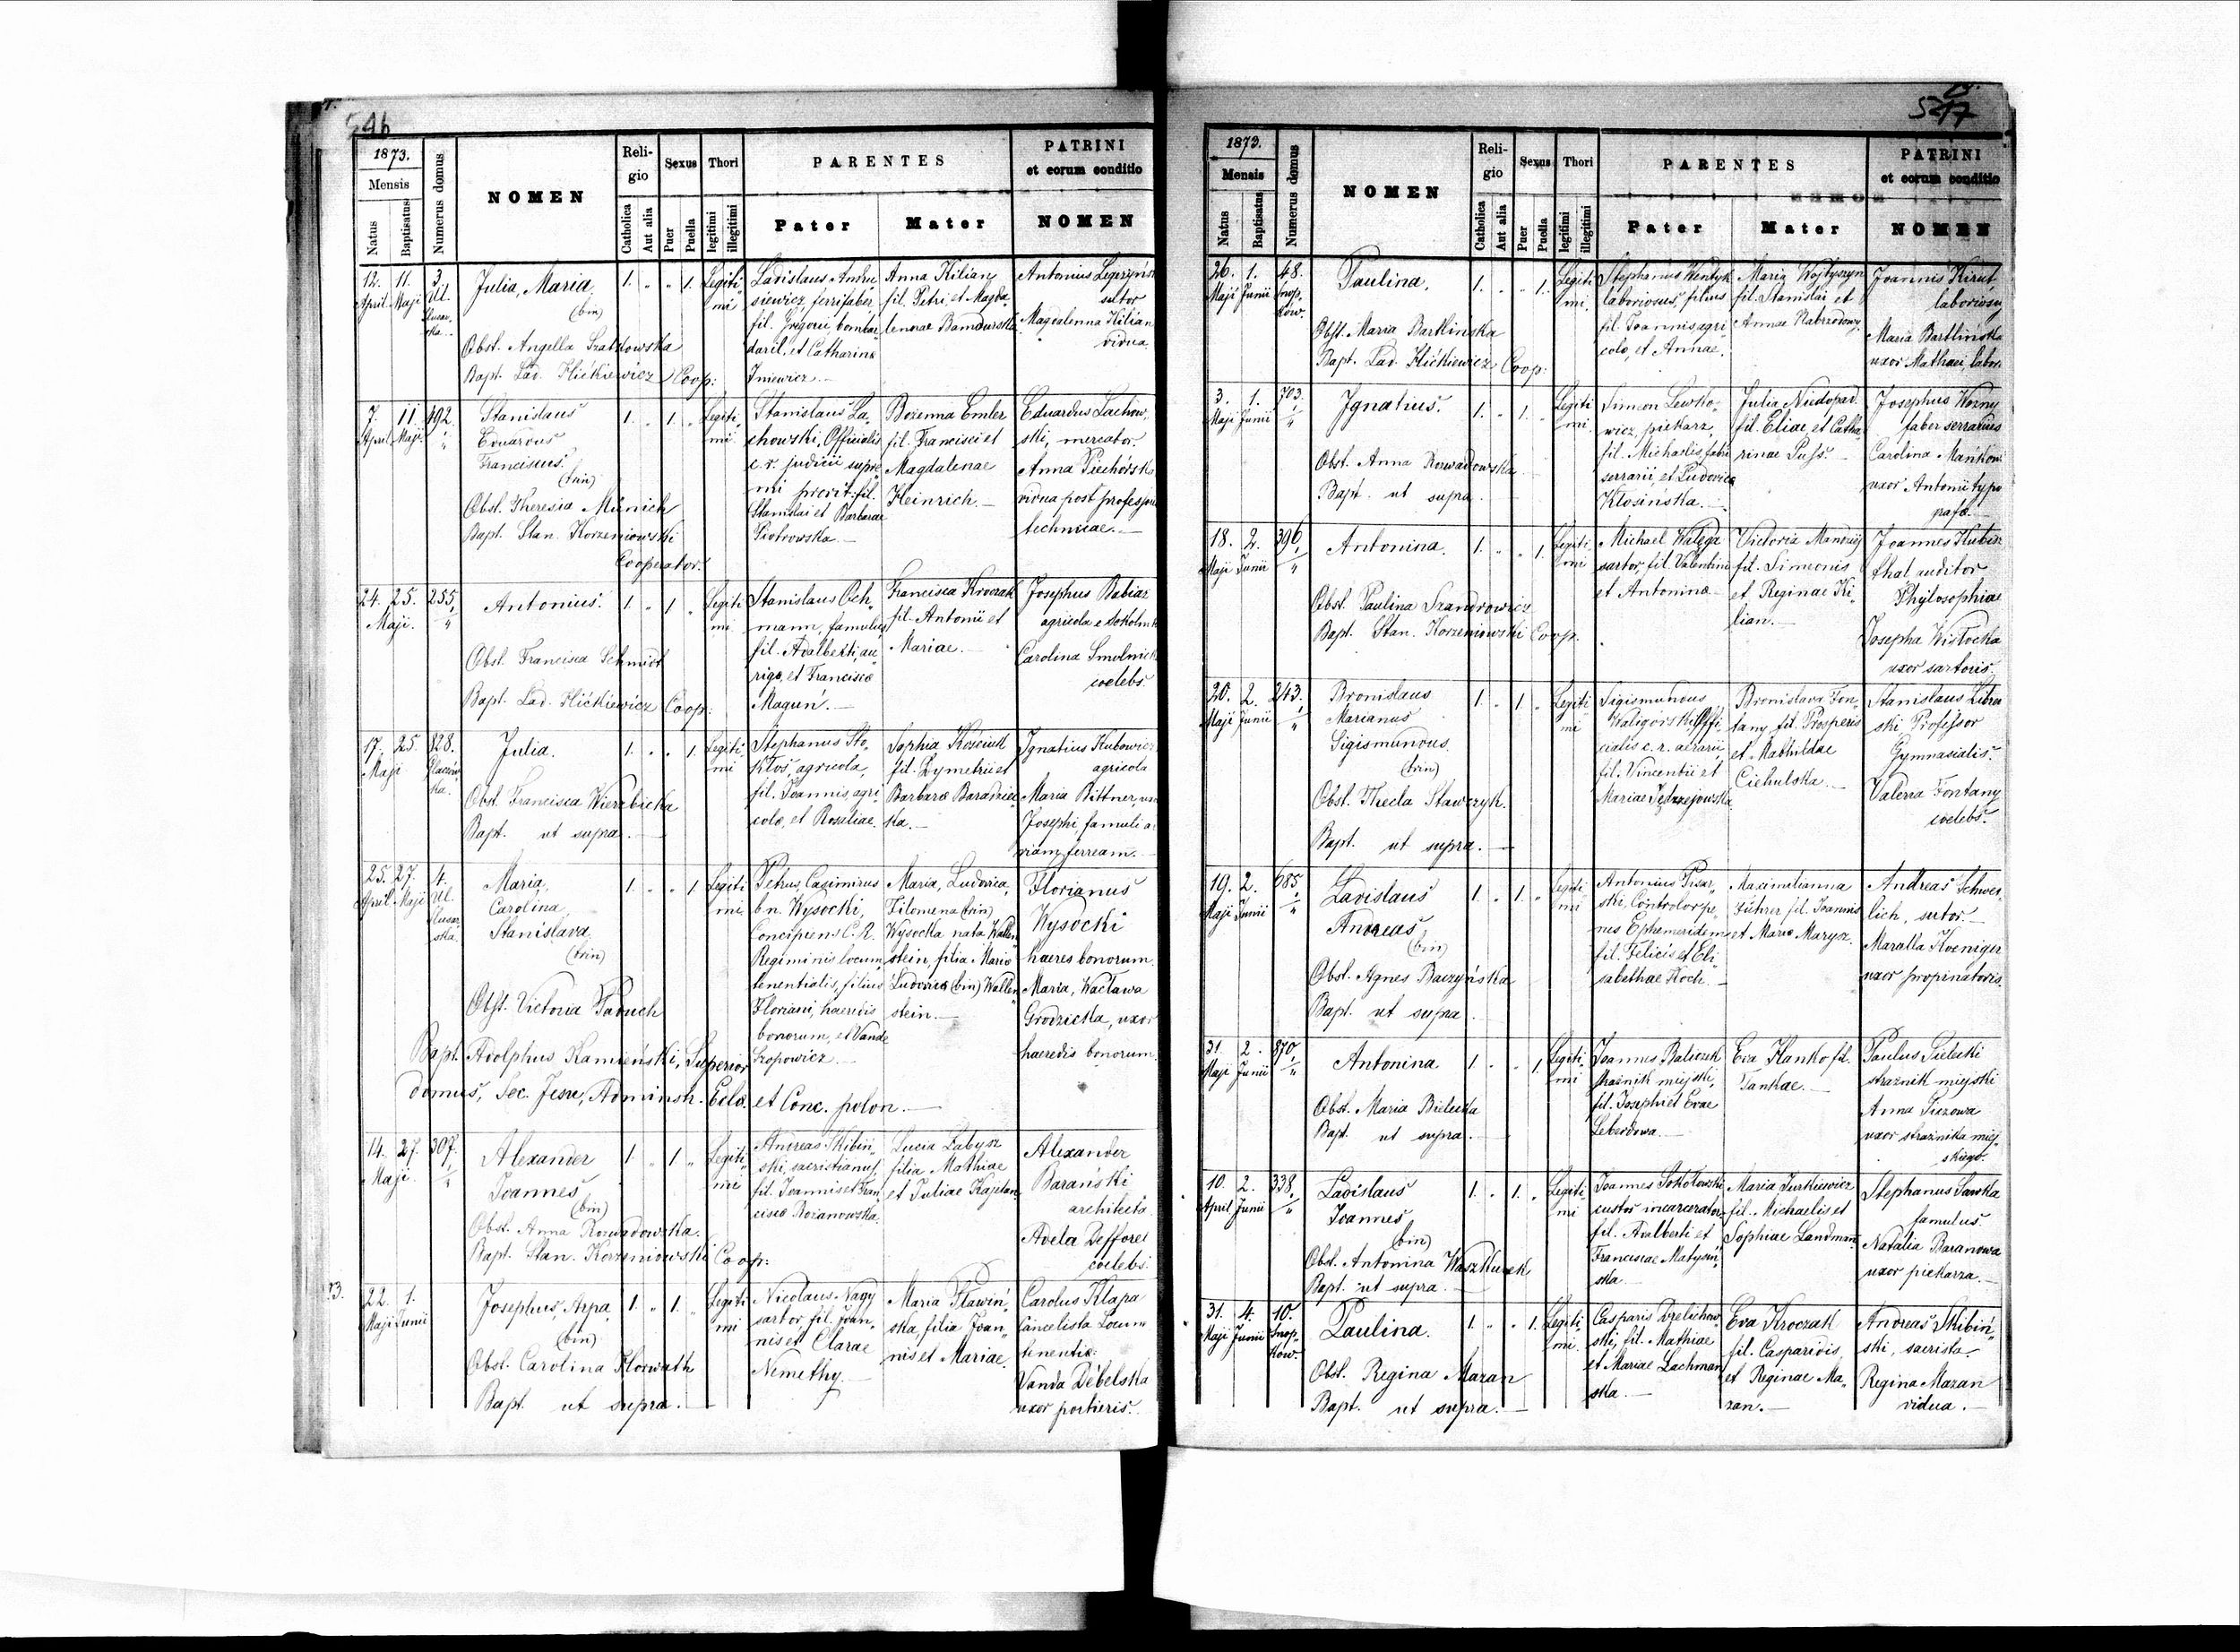 546
1873.
Mensis
Natus
Baptisatus
Numerus domus
NOMEN
Religio
Catholica
Aut alia
Sexus
Puer
Puella
Thori
legitimi
illegitimi
PARENTES
Pater
Mater
PATRINI
et eorum conditio
NOMEN
12. April
11. Maji
3. Ul.
Julia, Maria
(bin)
Obst. Angella Szatkowska
Bapt. Lad. Hićkiewicz Coop:
1. „ „ 1.
Legitimi
Ladislaus Andru
siewicz, ferrifaber
fil. Gregorii, bombar
darii, et Catharina
Jniewicz.—
Anna Kilian
fil. Petri et Magda
lenae Bandurska
Antonius
sutor
Magdalenna Kilian
vidua.
7. April
11. Maji
492.
Stanislaus
Eduardus
Franciscus.
(trin)
Obst. Theresia Münich
Bapt. Stan. Korzeniowski
Cooperator.
1. „ 1. „
Legitimi
Stanislaus La„
chowski, Officialis
c. r. judicii supre
mi provit. fil.
Stanislai et Barbarae
Piotrowska.—
Bozenna Emler
fil. Francisci et
Magdalenae
Heinrich.—
Eduardus Lachow„
ski, mercator
Anna Piechórska
vidua post
technicae.—
24. 25.
Maji.
255.
Antonius.
Obst. Francisca Schmidt
Bapt. Lad. Hićkiewicz Coop:
1. „ 1. „
Legitimi
Stanislaus Och„
mann, famulus
fil. Adalberti, au„
riga, et Francisca
Magun.—
Francisca Kroczak
fil. Antonii et
Mariae.—
Josephus Babiar
agricola e
Carolina
coelebs.
17. 25.
Maji
828.
Julia.
Obst. Francisca Wierzbicka
Bapt. ut supra.—
1. „ „ 1.
Legitimi
Stephanus Sto„
kłos, agricola,
fil. Joannis agri„
cola, et Rosaliae.
Sophia
fil. Dymetrii et
Barbara
ka.—
Ignatius Kubowicz
agricola
Maria Bittner,
Josephi, famuli
viam ferream.—
25. April
27. Maji
4. Ul.
Maria,
Carolina,
Stanislava
(trin)
Obst. Victoria Paduch
Bapt. Adolphus Kamieński, Superior
domus, Soc. Jesu, Adminstr. Eccl. et Conc. polon.—
1. „ „ 1.
Legitimi
Petrus, Casimirus
bn. Wysocki,
Concipiens C. R.
Regiminis locum„
tenentialis, filius
Floriani, haeredis
bonorum, et Vanda
Szopowicz.—
Maria, Ludovica,
Filomena (trin)
Wysocka nata Wallen
stein, filia Maria
Ludovica (bin) Wallen
stein.—
Florianus
Wysocki
haeres bonorum.
Maria, Wacława
Grodzicka, uxor
haeredis bonorum.
14. 27.
Maji
307.
Alexander
Joannes
(bin)
Obst. Anna Rozwadowska.
Bapt. Stan. Korzeniowski Coop:
1. „ 1. „
Legitimi
Andreas Skibiń„
ski, sacristianus,
fil. Joannis et Fran„
cisca Rozanowska.
Lucia Zabysz
filia Mathiae
et Juliae Kapelan
Alexander
Barański
architecta
Adela
coelebs.
22. Maji
1. Junii
Josephus, Arpa
(bin)
Obst. Carolina Horwath
Bapt. ut supra.—
1. „ 1. „
Legitimi
Nicolaus Nagy
sartor, fil. Joan„
nis et Clarae
Nemethy.—
Maria Sławiń„
ska, filia Joan„
nis et Mariae.
Carolus Klapa
Cancelista Locum
tenentia:
Vanda Debelska
uxor portieris.
547
1873.
Mensis
Natus
Baptisatus
Numerus domus
NOMEN
Religio
Catholica
Aut alia
Sexus
Puer
Puella
Thori
legitimi
illegitimi
PARENTES
Pater
Mater
PATRINI
et eorum conditio
NOMEN
26. Maji
1. Junii
48.
Snop„
ków.
Paulina.
Obst. Maria Bartlińska
Bapt. Lad. Hićkiewicz Coop:
1. „ „ 1.
Legitimi
Stephanus Wendyk
laboriosus, filius
fil. Joannis agri
cola, et Annae.
Maria Wojtyszyn
fil. Stanislai et
Annae
Joannis
laboriosus
Maria Bartlińska
uxor Mathaei, labor.
3. Maji
1. Junii
703.
Ignatius.
Obst. Anna Rozwadowska
Bapt. ut supra.
1. „ 1. „
Legitimi
Simeon Lewko„
wicz, piekarz,
fil. Michaelis, fabri
serrarii, et Ludovica
Kłosińska.—
Julia Niedopad.
fil. Eliae, et Catha„
rinae Puss.—
Josephus Wozny
faber serrarius
Carolina
uxor Antonii typo
18. Maji
2. Junii
396.
Antonina.
Obst. Paulina Szandrowicz
Bapt. Stan. Korzeniowski Coop.
1. „ „ 1.
Legitimi
Michael Walega
sartor, fil. Valentini
et Antonina.—
Victoria
fil. Simeonis
et Reginae Ki„
lian.—
Joannes
auditor
Phylosophiae
Josepha Wisłocka
uxor sartoris.
20. Maji
2. Junii
243.
Bronislaus
Marianus
Sigismundus.
(trin)
Obst. Thecla Stawczyk.
Bapt. ut supra.—
1. „ 1. „
Legitimi
Sigismundus
Waligórski, Offi„
cialis c. r. aerarii,
fil. Vincentii et
Mariae Jędrzejowska
Bronislava Fon„
tany fil. Prosperis
et Mathildae
Cichulska.—
Stanislaus
ski Professor
Gymnasialis.
Valeria Fontany
coelebs.
19. Maji
2. Junii
685.
Ladislaus
Andreas
(bin)
Obst. Agnes Baczyńska
Bapt. ut supra.
1. „ 1. „
Legitimi
Antonius Pisar„
ski, Controlor pe„
nes Ephemeridem
fil. Felicis et Eli„
sabethae Koch.—
Maximilianna
Führer fil. Joannis
et Maria Marysz.
Andreas
lich, sutor.—
Maralla Koeniger
uxor propinatoris.
31. Maji
2. Junii
870.
Antonina
Obst. Maria Bielecka
Bapt. ut supra.
1. „ „ 1.
Legitimi
Joannes Baliczek
strażnik miejski,
fil. Josephi et Evae
Leberdowa.—
Eva Hanko fil.
Pankae.—
Paulus Sielecki
strażnik miejski
Anna
uxor strażnika miej„
skiego.
10. April
2. Junii
338.
Ladislaus
Joannes
(bin)
Obst. Antonina Waszkurek
Bapt. ut supra.—
1. „ 1. „
Legitimi
Joannes Sokołowski
custos incarcerator.
fil. Adalberti et
Franciscae Matysiń„
ska.—
Maria Jurkiewicz
fil. Michaelis et
Sophiae Landman.
Stephanus Sawka
famulus.
Natalia Baranowa
uxor piekarza.—
31. Maji
4. Junii
10.
Snop„
ków.
Paulina.
Obst. Regina Mazan
Bapt. ut supra.—
1. „ „ 1.
Legitimi
Casparis Drelichow„
ski, fil. Mathiae
et Mariae Lachman
ska.—
Eva Kroczak
fil. Casparidis,
et Reginae Ma„
zan.—
Andreas Skibiń„
ski, sacrista.
Regina Mazan
vidua.—